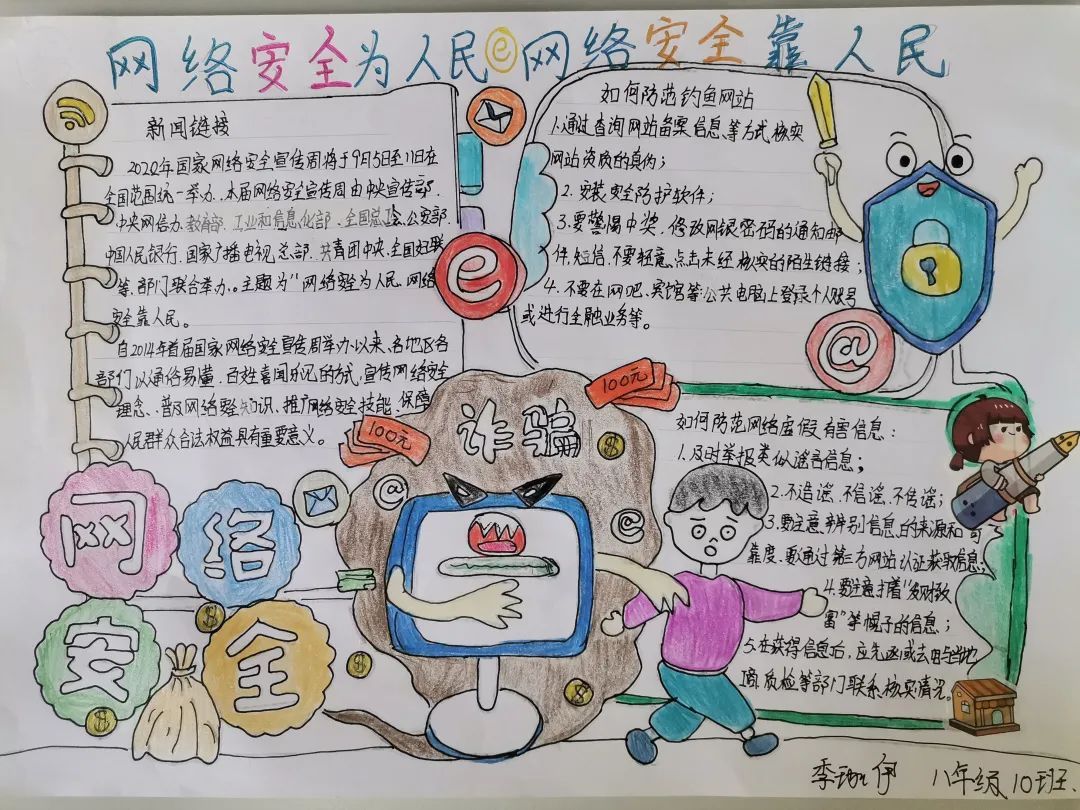 网络安全为人民e网络安全靠人民
新闻链接
2022年国家网络安全宣传周将于9月5日至11日在
全国范围统一举办.本届网络安全宣传周由中央宣传部.
中央网信办.教育部.工业和信息化部.全国总工会.公安部.
中国人民银行.国家广播电视总部.共青团中央.全国妇联
等.部门联合举办.。主题为"网络安全为人民.网络
安全靠人民。
自2014年首届国家网络安全宣传周举办以来、各地区各
部们以通俗易懂.百姓喜闻乐见的方式,宣传网络安全
理念、普及网络安全知识、推广网络安全技能、保障
人民群众合法权益具有重要意义。
如何防范钓鱼网站
1.通过查询网站备案信息等方式核实
网站资质的真伪;
2.安装安全防护软件;
3.要警惕中奖、修改网银密码的通知邮
件,短信,不要轻意点击未经核实的陌生链接;
4.不要在网吧、宾馆等公共电脑上登录个人账号
或进行金融业务等。
e
@
诈骗
100元
100元
@
@
如何防范网络虚假有害信息:
1.及时举报类似谣言信息;
2.不造谣.不信谣.不传谣;
3.要注意辨别信息的来源和可
靠度、要通过第三方网站认证获取信息;
4.要注意打着"发财致
富"等幌子的信息;
5.在获得信息后,应先函或去电与当地
商.质检等部门联系,核实情况。
网络
安全
八年级10班.